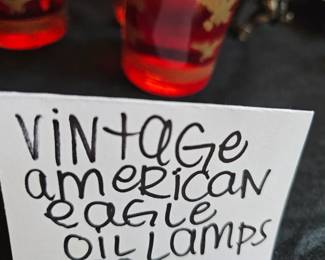 VINtaGe
ameRICaN
eaGLe
OIL Lamps